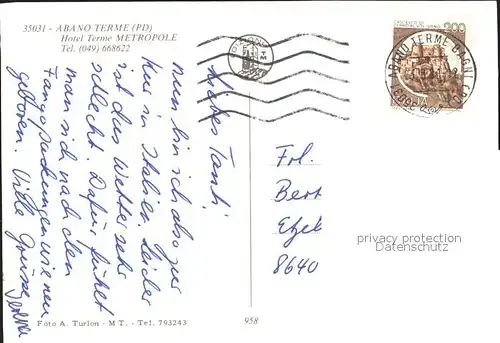 35031 - ABANO TERME (PD)
Hotel Terme METROPOLE
Tel. (049) 668622
Liebes Tanti!
nun bin ich also zur
Kur in Italien. Leider
ist das Wetter sehr
schlecht. Dafür fühlt
man sich nach den
Fangopackungen wie neu
geboren. Viele Grüsse
Foto A. Turlon - M T. - Tel. 793243
958
200
ABANO TERME BAGNI
Frl.
Bert
Etzel
8640
privacy protection
Datenschutz